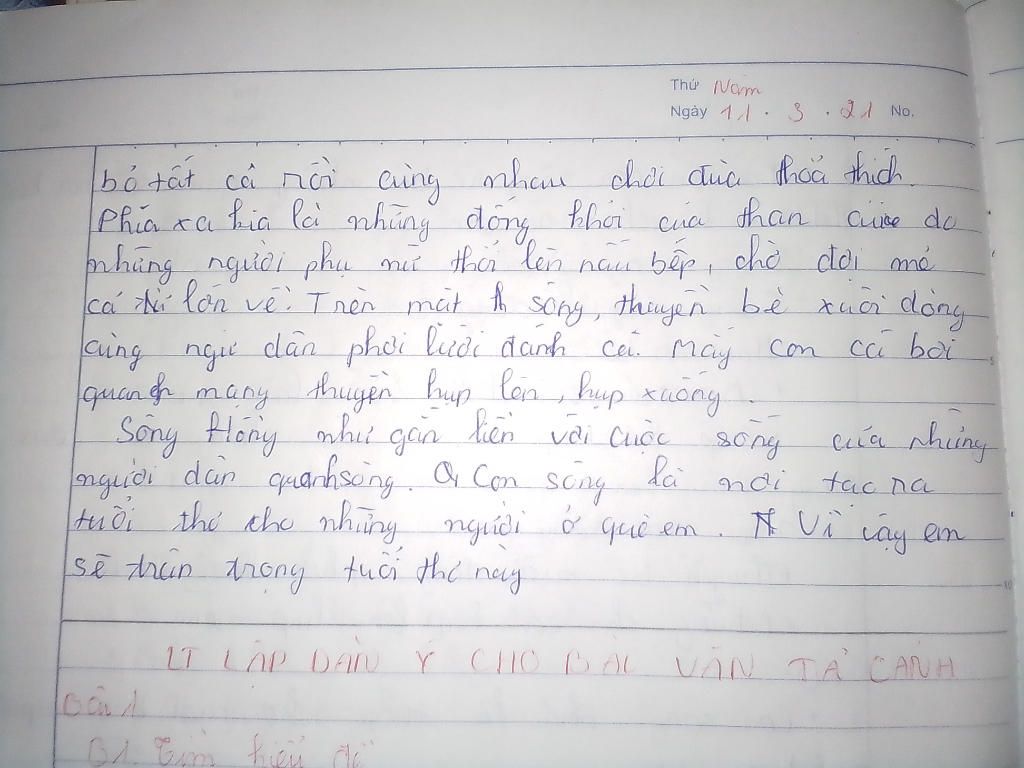 Thứ Năm
Ngày 11 . 3 . 21 No.
bỏ tất cả rồi cùng nhau chơi đùa thoả thích.
Phía xa kia là những đống khói của than củi do
những người phụ nữ thổi lên nấu bếp, chờ đợi mẻ
cá lớn về. Trên mặt sông, thuyền bè xuôi dòng
cùng ngư dân phơi lưới đánh cá. Mấy con cá bơi
quanh mạng thuyền hụp lên, hụp xuống.
Sông Hồng như gắn liền với cuộc sống của những
người dân quanh sông. Con sông là nơi tạc ra
tuổi thơ cho những người ở quê em. Vì vậy em
sẽ trân trọng tuổi thơ này
LT LẬP DÀN Ý CHO BÀI VĂN TẢ CẢNH
Bài 1
B1. Tìm hiểu đề